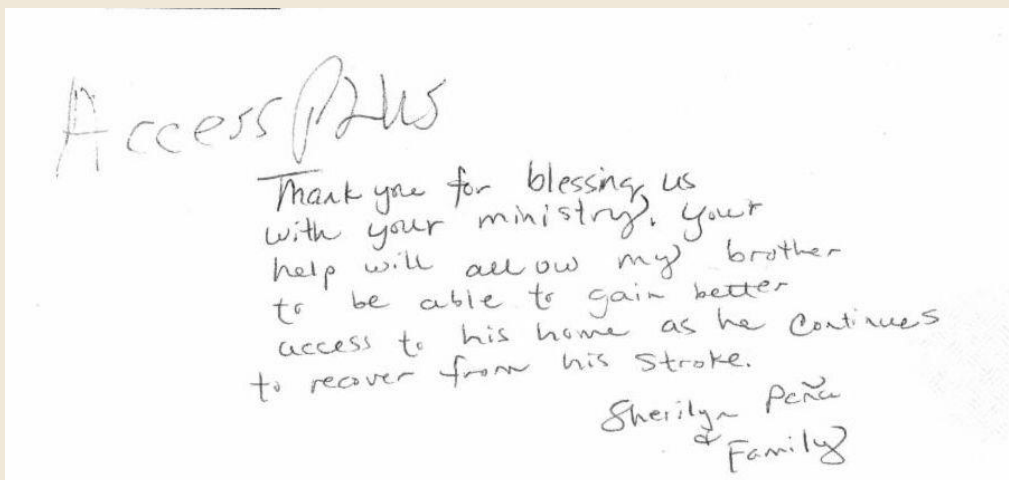 Access Plus
Thank you for blessing us
with your ministry. Your
help will allow my brother
to be able to gain better
access to his home as he continues
to recover from his stroke.
Sherilyn Peña
& Family